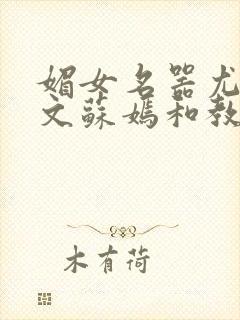 媚女名器尤
文蘇媽和教
木有荷